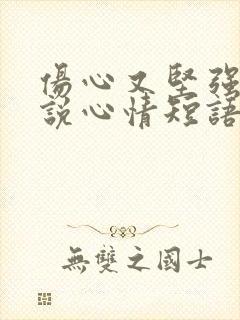 傷心又堅強
說心情短語
無雙之國士